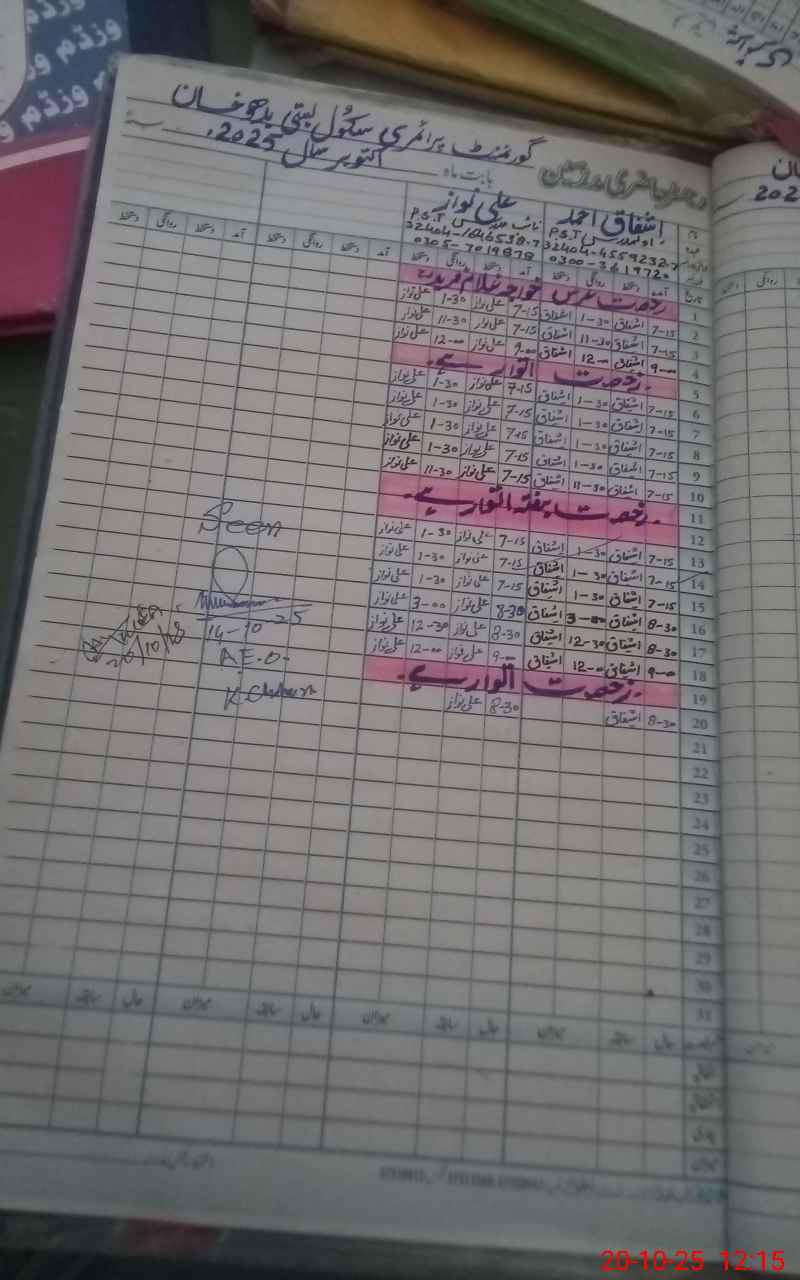 گورنمنٹ پرائمری سکول بستی بدھو خان
رجسٹر حاضری مدرسین بابت ماہ اکتوبر سال 2025ء
نام اشفاق احمد علی نواز
اول مدرس P.S.T نائب مدرس P.S.T
32404-4559232-7 32404-1646538-7
0300-3619720 0305-7019878
تاریخ آمد دستخط روانگی دستخط آمد دستخط روانگی دستخط آمد دستخط روانگی دستخط آمد دستخط روانگی دستخط
1 رخصت عرس خواجہ غلام فرید ہے
2 7-15 اشفاق 1-30 اشفاق 7-15 علی نواز 1-30 علی نواز
3 7-15 اشفاق 11-30 اشفاق 7-15 علی نواز 11-30 علی نواز
4 9-00 اشفاق 12-00 اشفاق 9-00 علی نواز 12-00 علی نواز
5 رخصت اتوار ہے۔
6 7-15 اشفاق 1-30 اشفاق 7-15 علی نواز 1-30 علی نواز
7 7-15 اشفاق 1-30 اشفاق 7-15 علی نواز 1-30 علی نواز
8 7-15 اشفاق 1-30 اشفاق 7-15 علی نواز 1-30 علی نواز
9 7-15 اشفاق 1-30 اشفاق 7-15 علی نواز 1-30 علی نواز
10 7-15 اشفاق 11-30 اشفاق 7-15 علی نواز 11-30 علی نواز
11
12 رخصت ہفتہ اتوار ہے۔
13 7-15 اشفاق 1-30 اشفاق 7-15 علی نواز 1-30 علی نواز
14 7-15 اشفاق 1-30 اشفاق 7-15 علی نواز 1-30 علی نواز
15 7-15 اشفاق 1-30 اشفاق 7-15 علی نواز 1-30 علی نواز
16 8-30 اشفاق 3-00 اشفاق 8-30 علی نواز 3-00 علی نواز
17 8-30 اشفاق 12-30 اشفاق 8-30 علی نواز 12-30 علی نواز
18 9-00 اشفاق 12-00 اشفاق 9-00 علی نواز 12-00 علی نواز
19 رخصت اتوار ہے۔
20 8-30 اشفاق 8-30 علی نواز
21
22
23
24
25
26
27
28
29
30
31
Seen
14-10-25
A.E.O.
حال سابقہ میزان حال سابقہ میزان حال سابقہ میزان حال سابقہ میزان
میزان
20-10-25 12:15